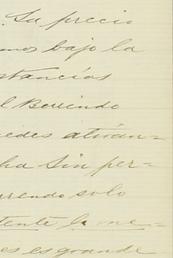 . Su precio
mos bajo la
stancias
l Berrendo
uedes atirán=
ha sin per=
rrendo solo
tente la me=
es es grande